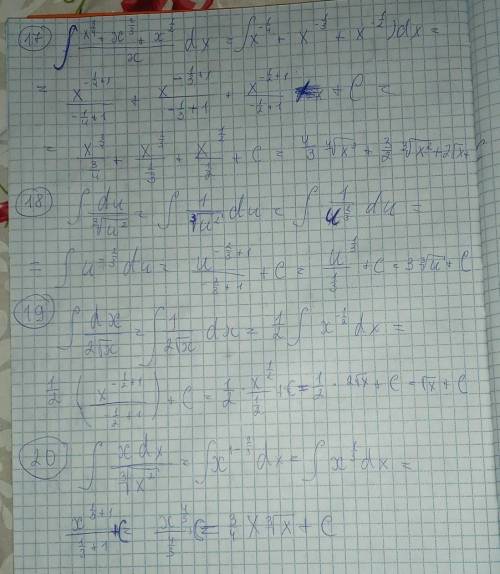 17) ∫ (x^(3/4) + x^(2/3) + x^(1/2))/x dx = ∫(x^(-1/4) + x^(-1/3) + x^(-1/2))dx =
= x^(-1/4+1)/(-1/4+1) + x^(-1/3+1)/(-1/3+1) + x^(-1/2+1)/(-1/2+1) + C =
= + C = 4/3 ∜x³ + 3/2 ∛x² + 2√x +
18) ∫ du/∛u² = ∫ 1/∛u² du = ∫ 1/u^(2/3) du =
= ∫ u^(-2/3) du = u^(-2/3+1)/(-2/3+1) + C = u^(1/3)/(1/3) + C = 3∛u + C
19) ∫ dx/(2√x) = ∫ 1/(2√x) dx = 1/2 ∫ x^(-1/2) dx =
1/2 (x^(-1/2+1)/(-1/2+1)) + C = 1/2 · x^(1/2)/(1/2) + C = 1/2 · 2√x + C = √x + C
20) ∫ x dx/∛x² = ∫ x^(1-2/3) dx = ∫ x^(1/3) dx =
x^(1/3+1)/(1/3+1) + C = x^(4/3)/(4/3) C = 3/4 x ∛x + C